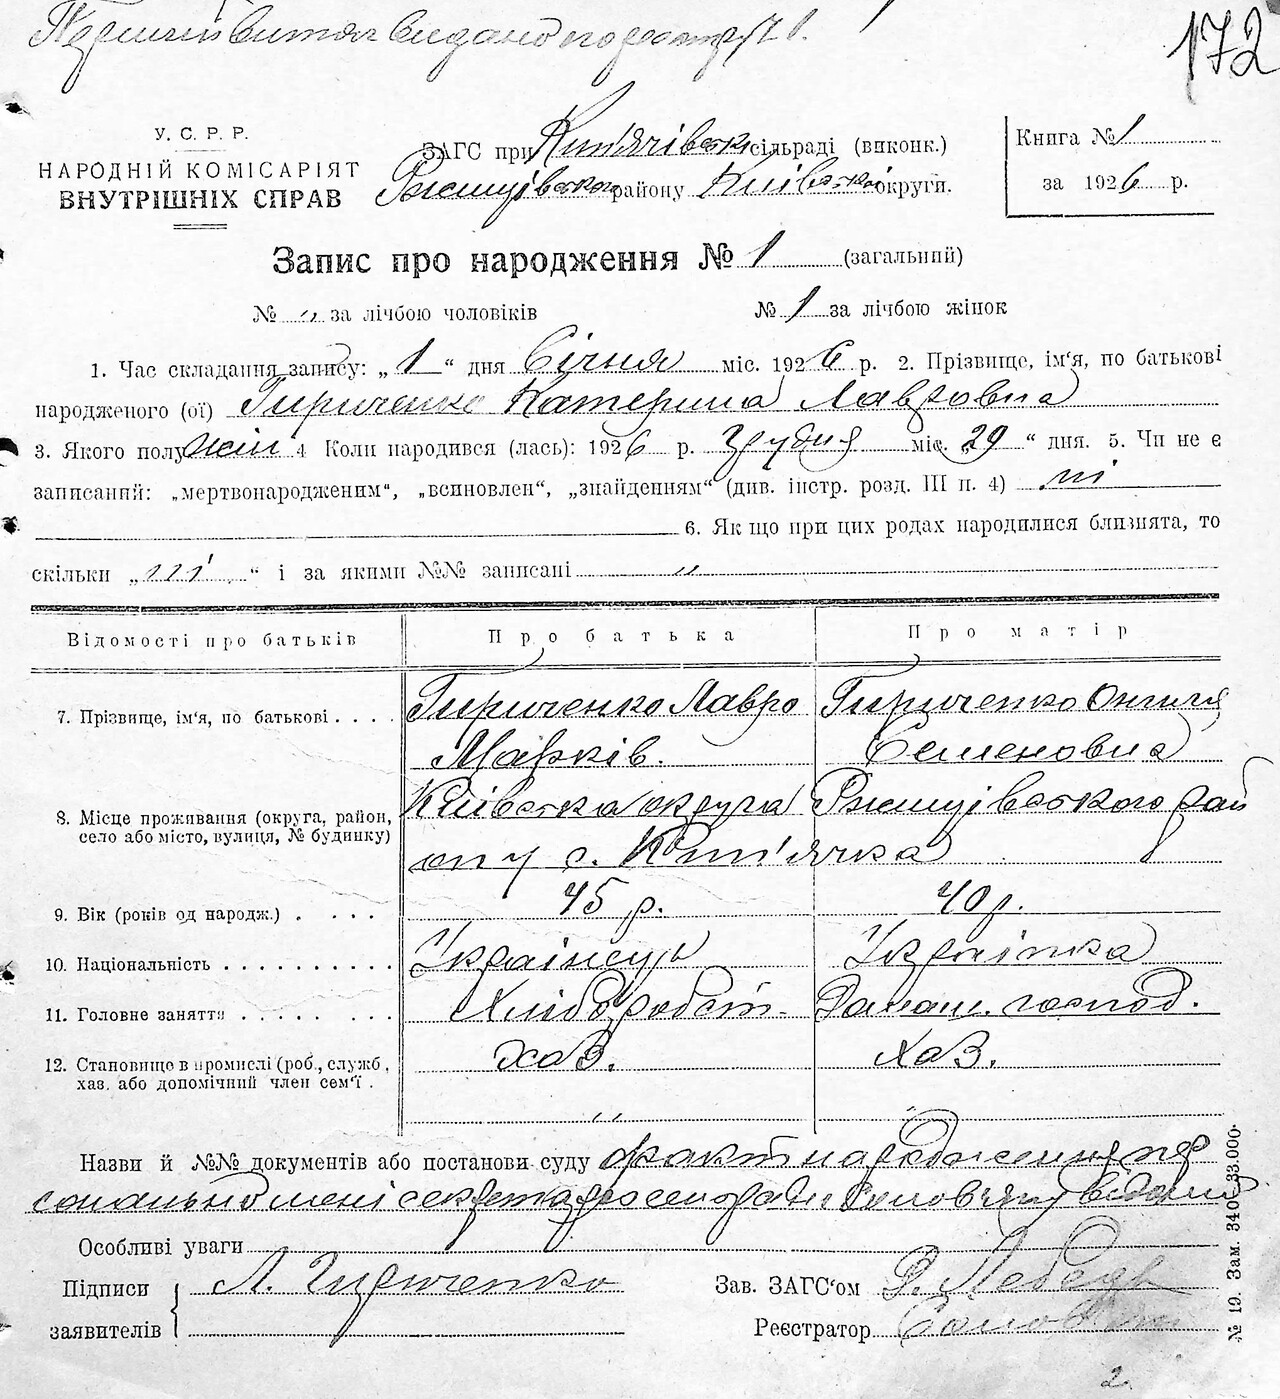 Перший витяг видано по реєстру 1.
172
У. С. Р. Р.
НАРОДНІЙ КОМІСАРІЯТ
ВНУТРІШНІХ СПРАВ
ЗАГС при Кип'ячівськ сільраді (виконк.)
Ржищівського району Київської округи.
Книга № 1
за 1926 р.
Запис про народження № 1 (загальний)
№ „ за лічбою чоловіків № 1 за лічбою жінок
1. Час складання запису: „1“ дня Січня міс. 1926 р. 2. Прізвище, ім'я, по батькові
народженого (ої) Гириченко Катерина Лавровна
3. Якого полу жін 4 Коли народився (лась): 1926 р. грудня міс. „29“ дня. 5. Чи не є
записаний: „мертвонародженим“, „всиновлен“, „знайденням“ (див. інстр. розд. III п. 4) ні
6. Як що при цих родах народилися близнята, то
скільки „ні“ і за якими №№ записані „
Відомості про батьків Про батька Про матір
7. Прізвище, ім'я, по батькові . . . . Гириченко Лавро Гириченко
Марків. Семеновна
8. Місце проживання (округа, район, село або місто, вулиця, № будинку) Київська округа Ржищівського рай
ону с. Кип'ячка
9. Вік (років од народж.) . . . . 45 р. 40 р.
10. Національність . . . . . . . . . . Українець Українка
11. Головне заняття . . . . . . . . Хліборобст. Домаш. господ.
12. Становище в промислі (роб., служб, хаз. або допомічний член сем'ї . хаз. хаз.
„ „
Назви й №№ документів або постанови суду факт народження пер
сонально мені секретарю сельради відомий
Особливі уваги
Підписи заявителів Л. Гириченко
Зав. ЗАГС'ом Лебедь
Реєстратор
№ 19. Зам. 340—33.000.
2